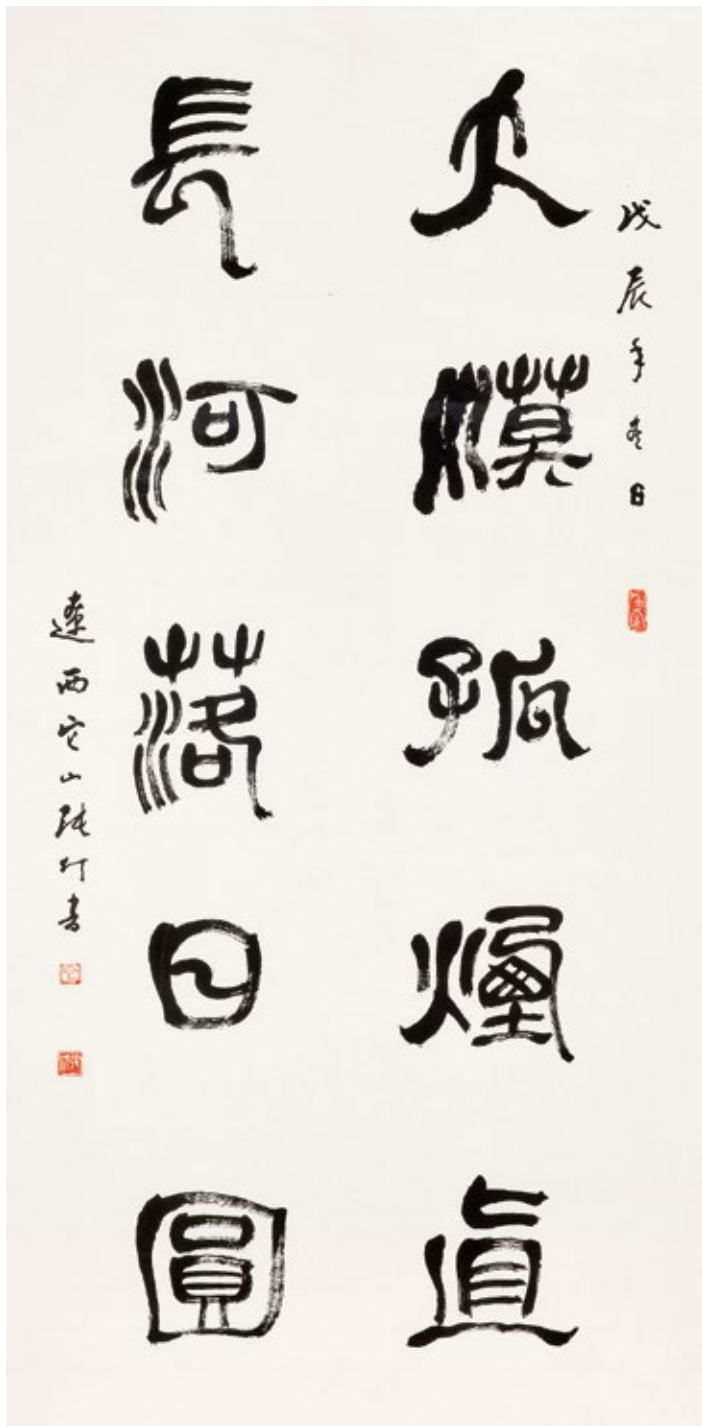 戊辰年春日
大漠孤煙直
長河落日圓
遼西它山張仃書